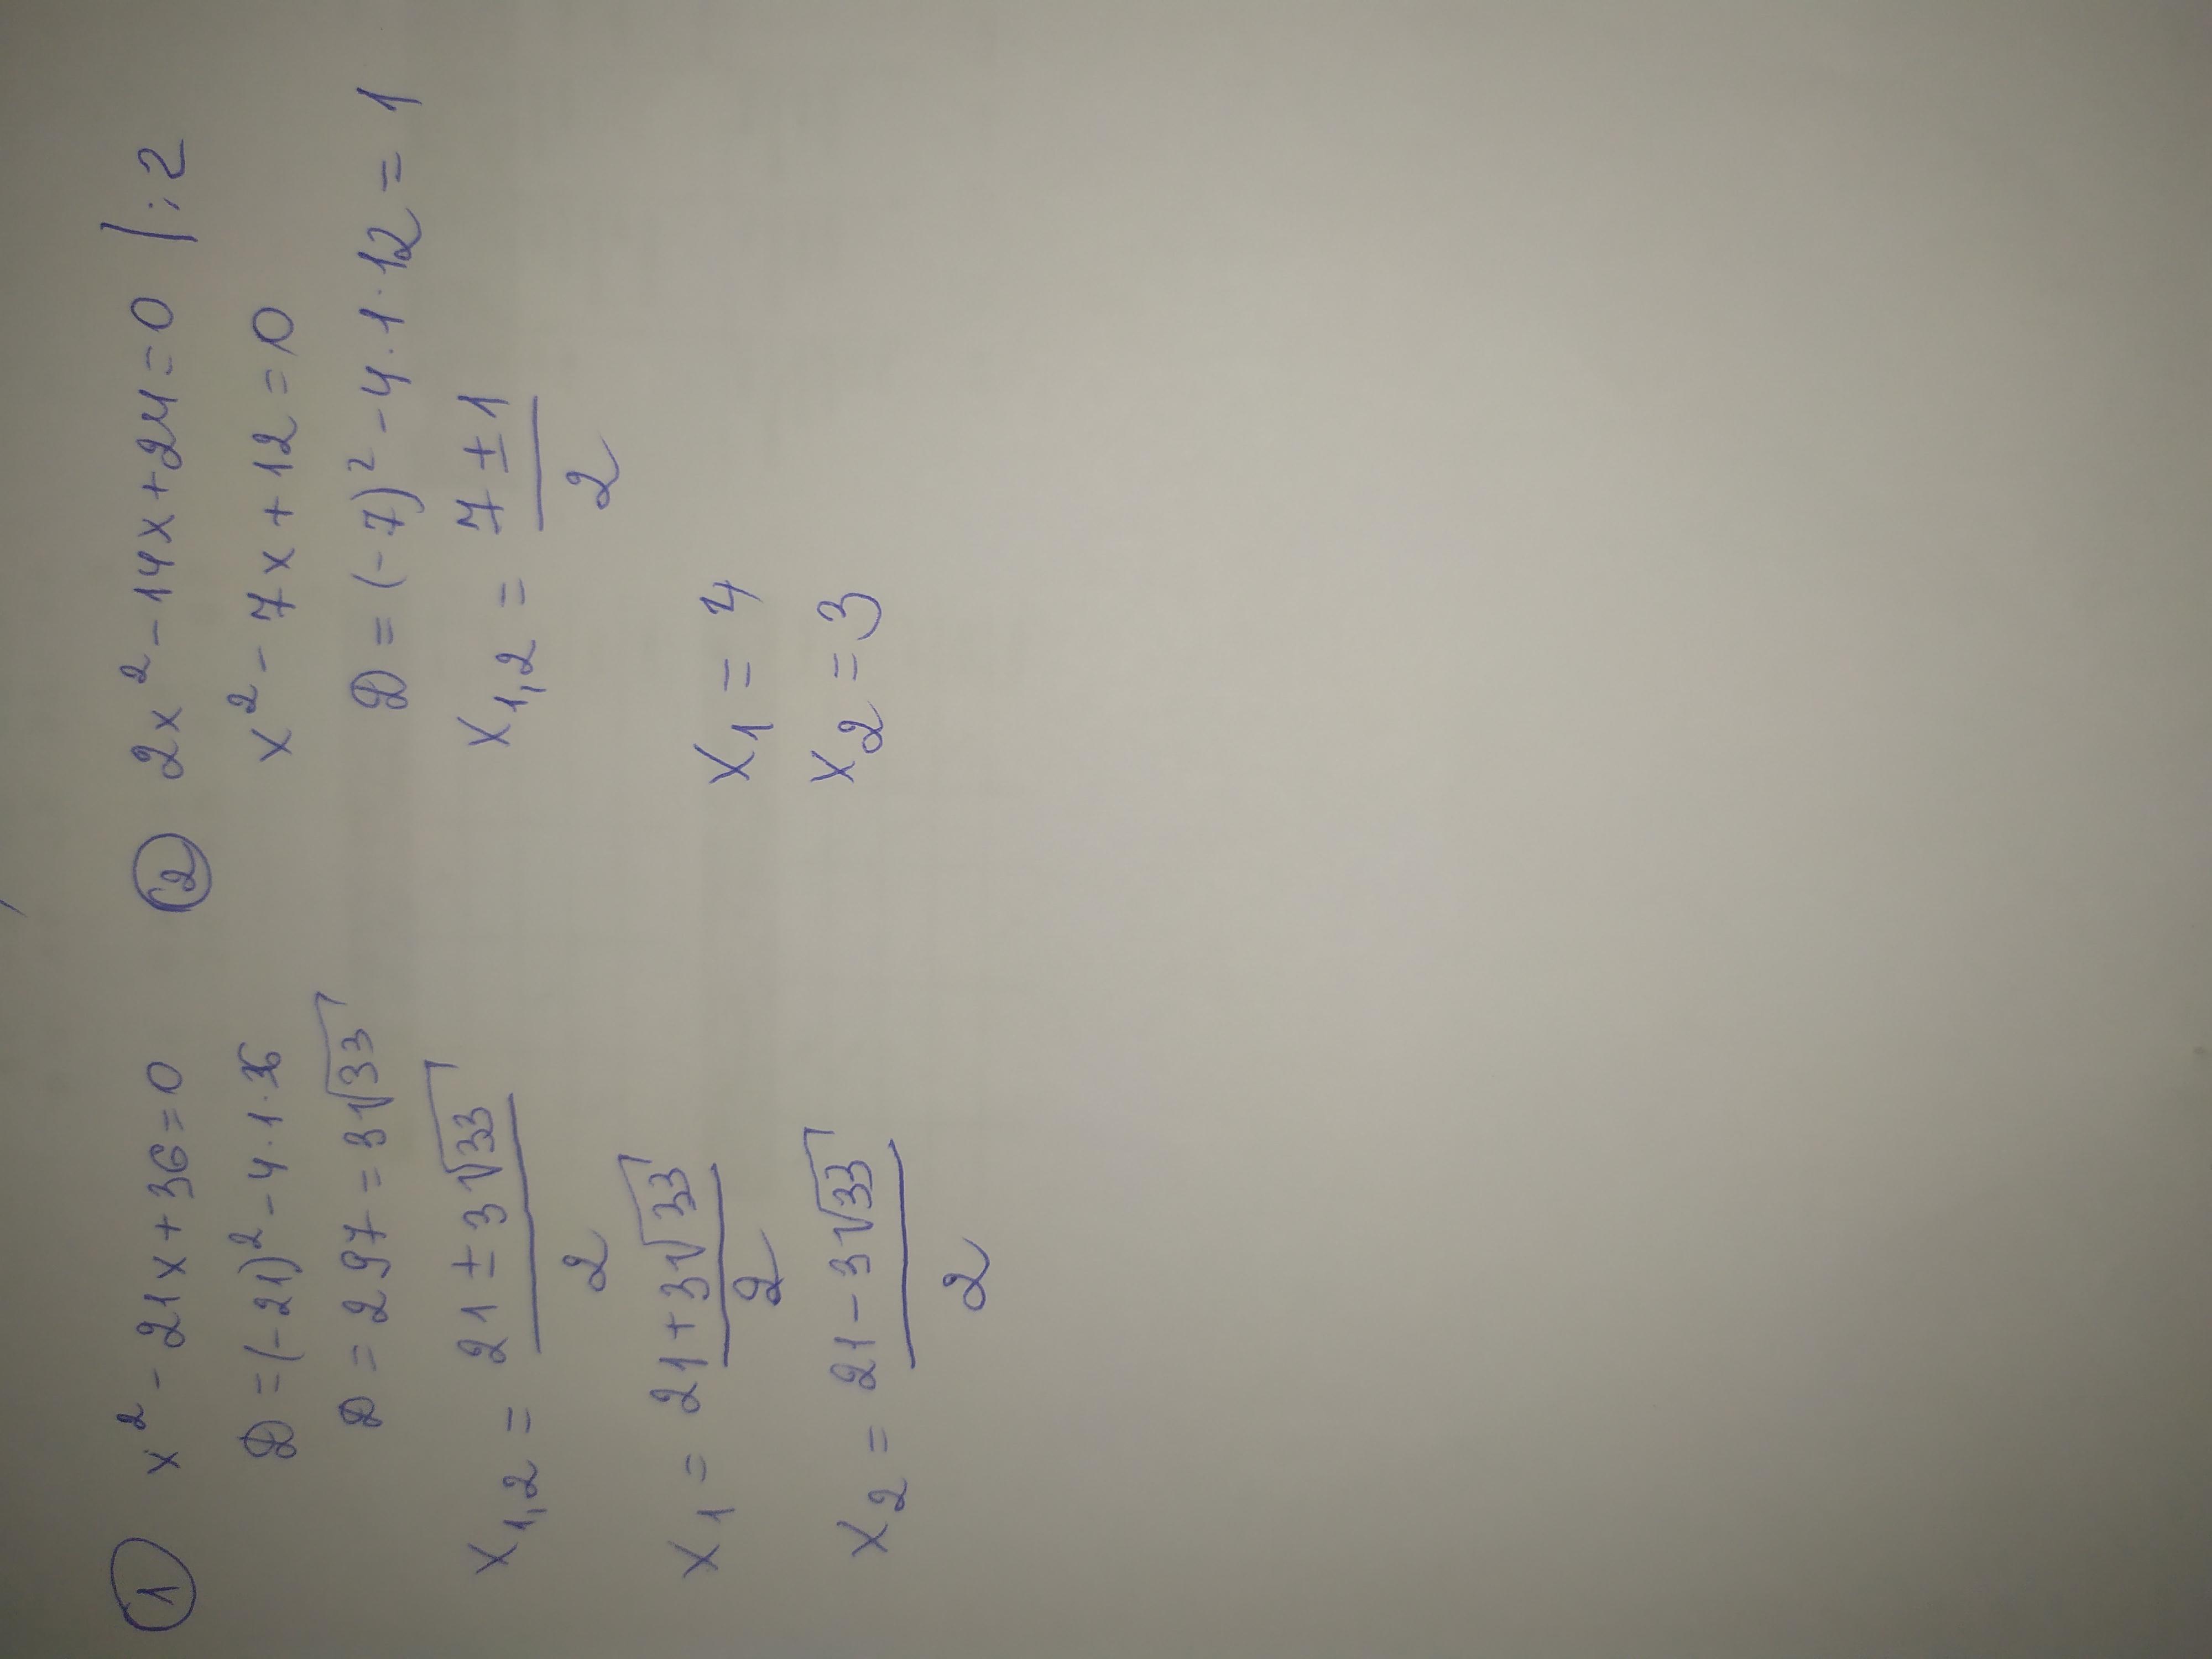 ① x² - 21x + 36 = 0
D = (-21)² - 4 · 1 · 36
D = 297 = 3√33
x₁,₂ = (21 ± 3√33) / 2
x₁ = (21 + 3√33) / 2
x₂ = (21 - 3√33) / 2
② 2x² - 14x + 24 = 0 | : 2
x² - 7x + 12 = 0
D = (-7)² - 4 · 1 · 12 = 1
x₁,₂ = (7 ± 1) / 2
x₁ = 4
x₂ = 3